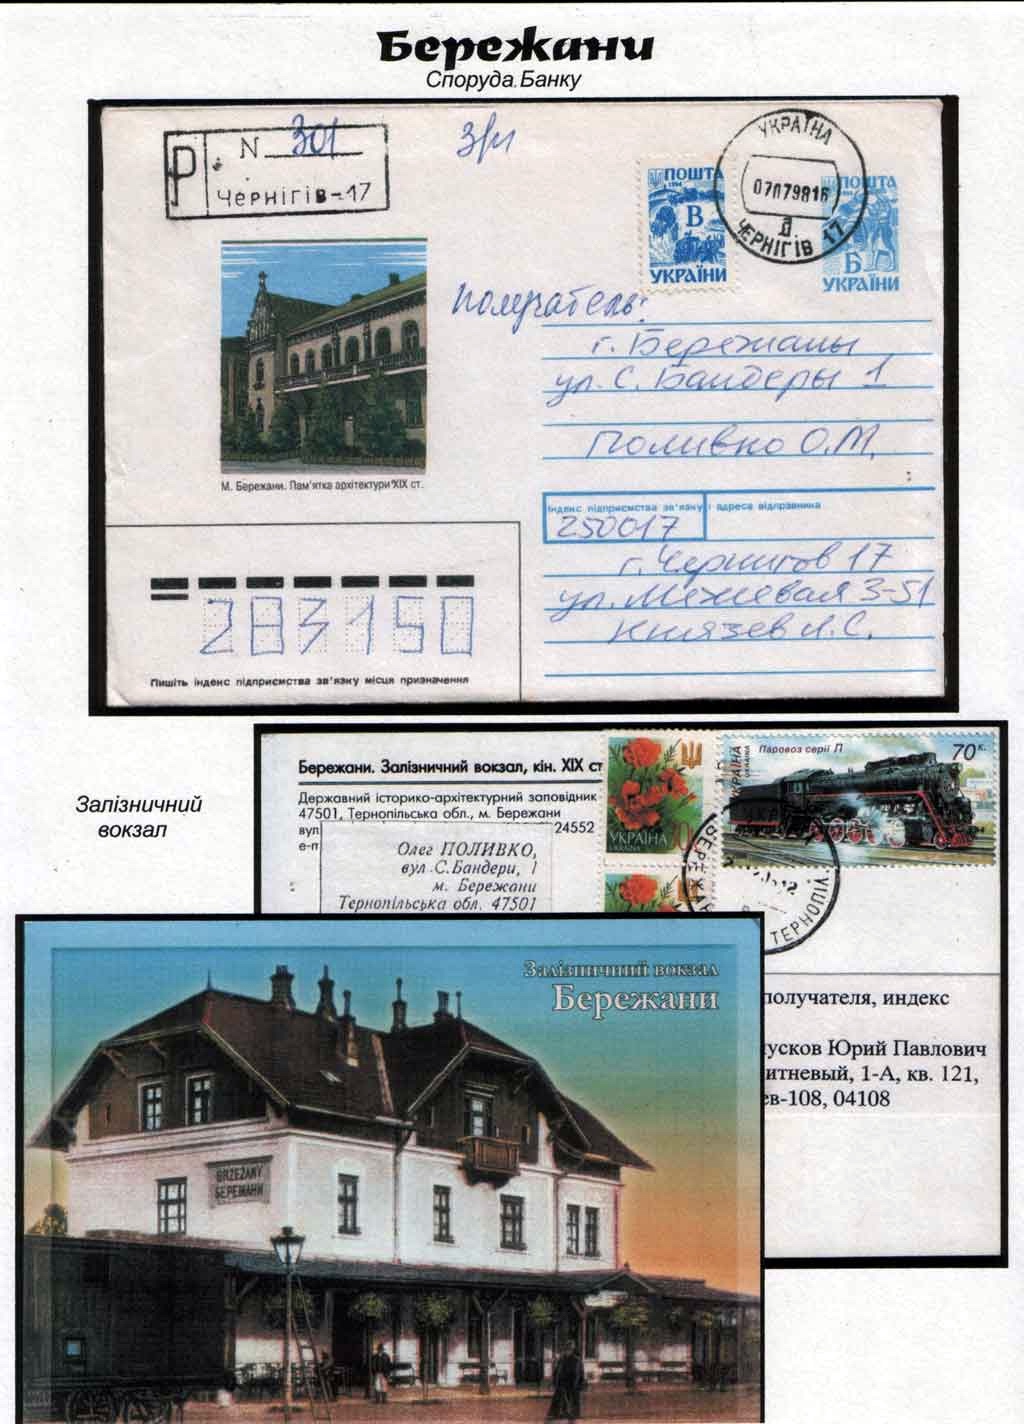 Бережани
Споруда Банку
Р N 301
Чернігів-17
ЗРИ
ПОШТА
1994
В
УКРАЇНИ
УКРАЇНА
0707981б
Д
ЧЕРНІГІВ 17
ПОШТА
Б
УКРАЇНИ
Получатель:
г. Бережаны
ул. С. Бандеры 1
Поливко О.М.
М. Бережани. Пам'ятка архітектури XIX ст.
Індекс підприємства зв'язку і адреса відправника
250017
г. Чернигов 17
ул. Межевая 3-51
Князев Л.С.
283150
Пишіть індекс підприємства зв'язку місця призначення
Залізничний
вокзал
Бережани. Залізничний вокзал, кін. XIX ст
Державний історико-архітектурний заповідник
47501, Тернопільська обл., м. Бережани
вул 24552
e-m
Олег ПОЛИВКО,
вул .С.Бандери, 1
м. Бережани
Тернопільська обл. 47501
УКРАЇНА
UKRAINE
УКРАЇНА
UKRAINE
Паровоз серії Л
70 к.
БЕРЕЖА
ТЕРНОПІЛ
получателя, индекс
усков Юрий Павлович
итневый, 1-А, кв. 121,
ев-108, 04108
Залізничний вокзал
Бережани
BRZEŻANY
БЕРЕЖАНИ